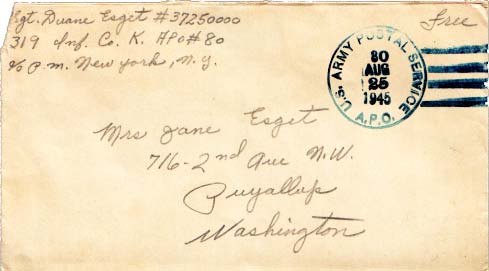 Sgt. Duane Esget #37250000
319 Inf. Co. K. APO #80
c/o P.M. New York, N.Y.
Free
U.S. ARMY POSTAL SERVICE
80
AUG
25
1945
A.P.O.
Mrs Jane Esget
716-2nd Ave N.W.
Puyallup
Washington